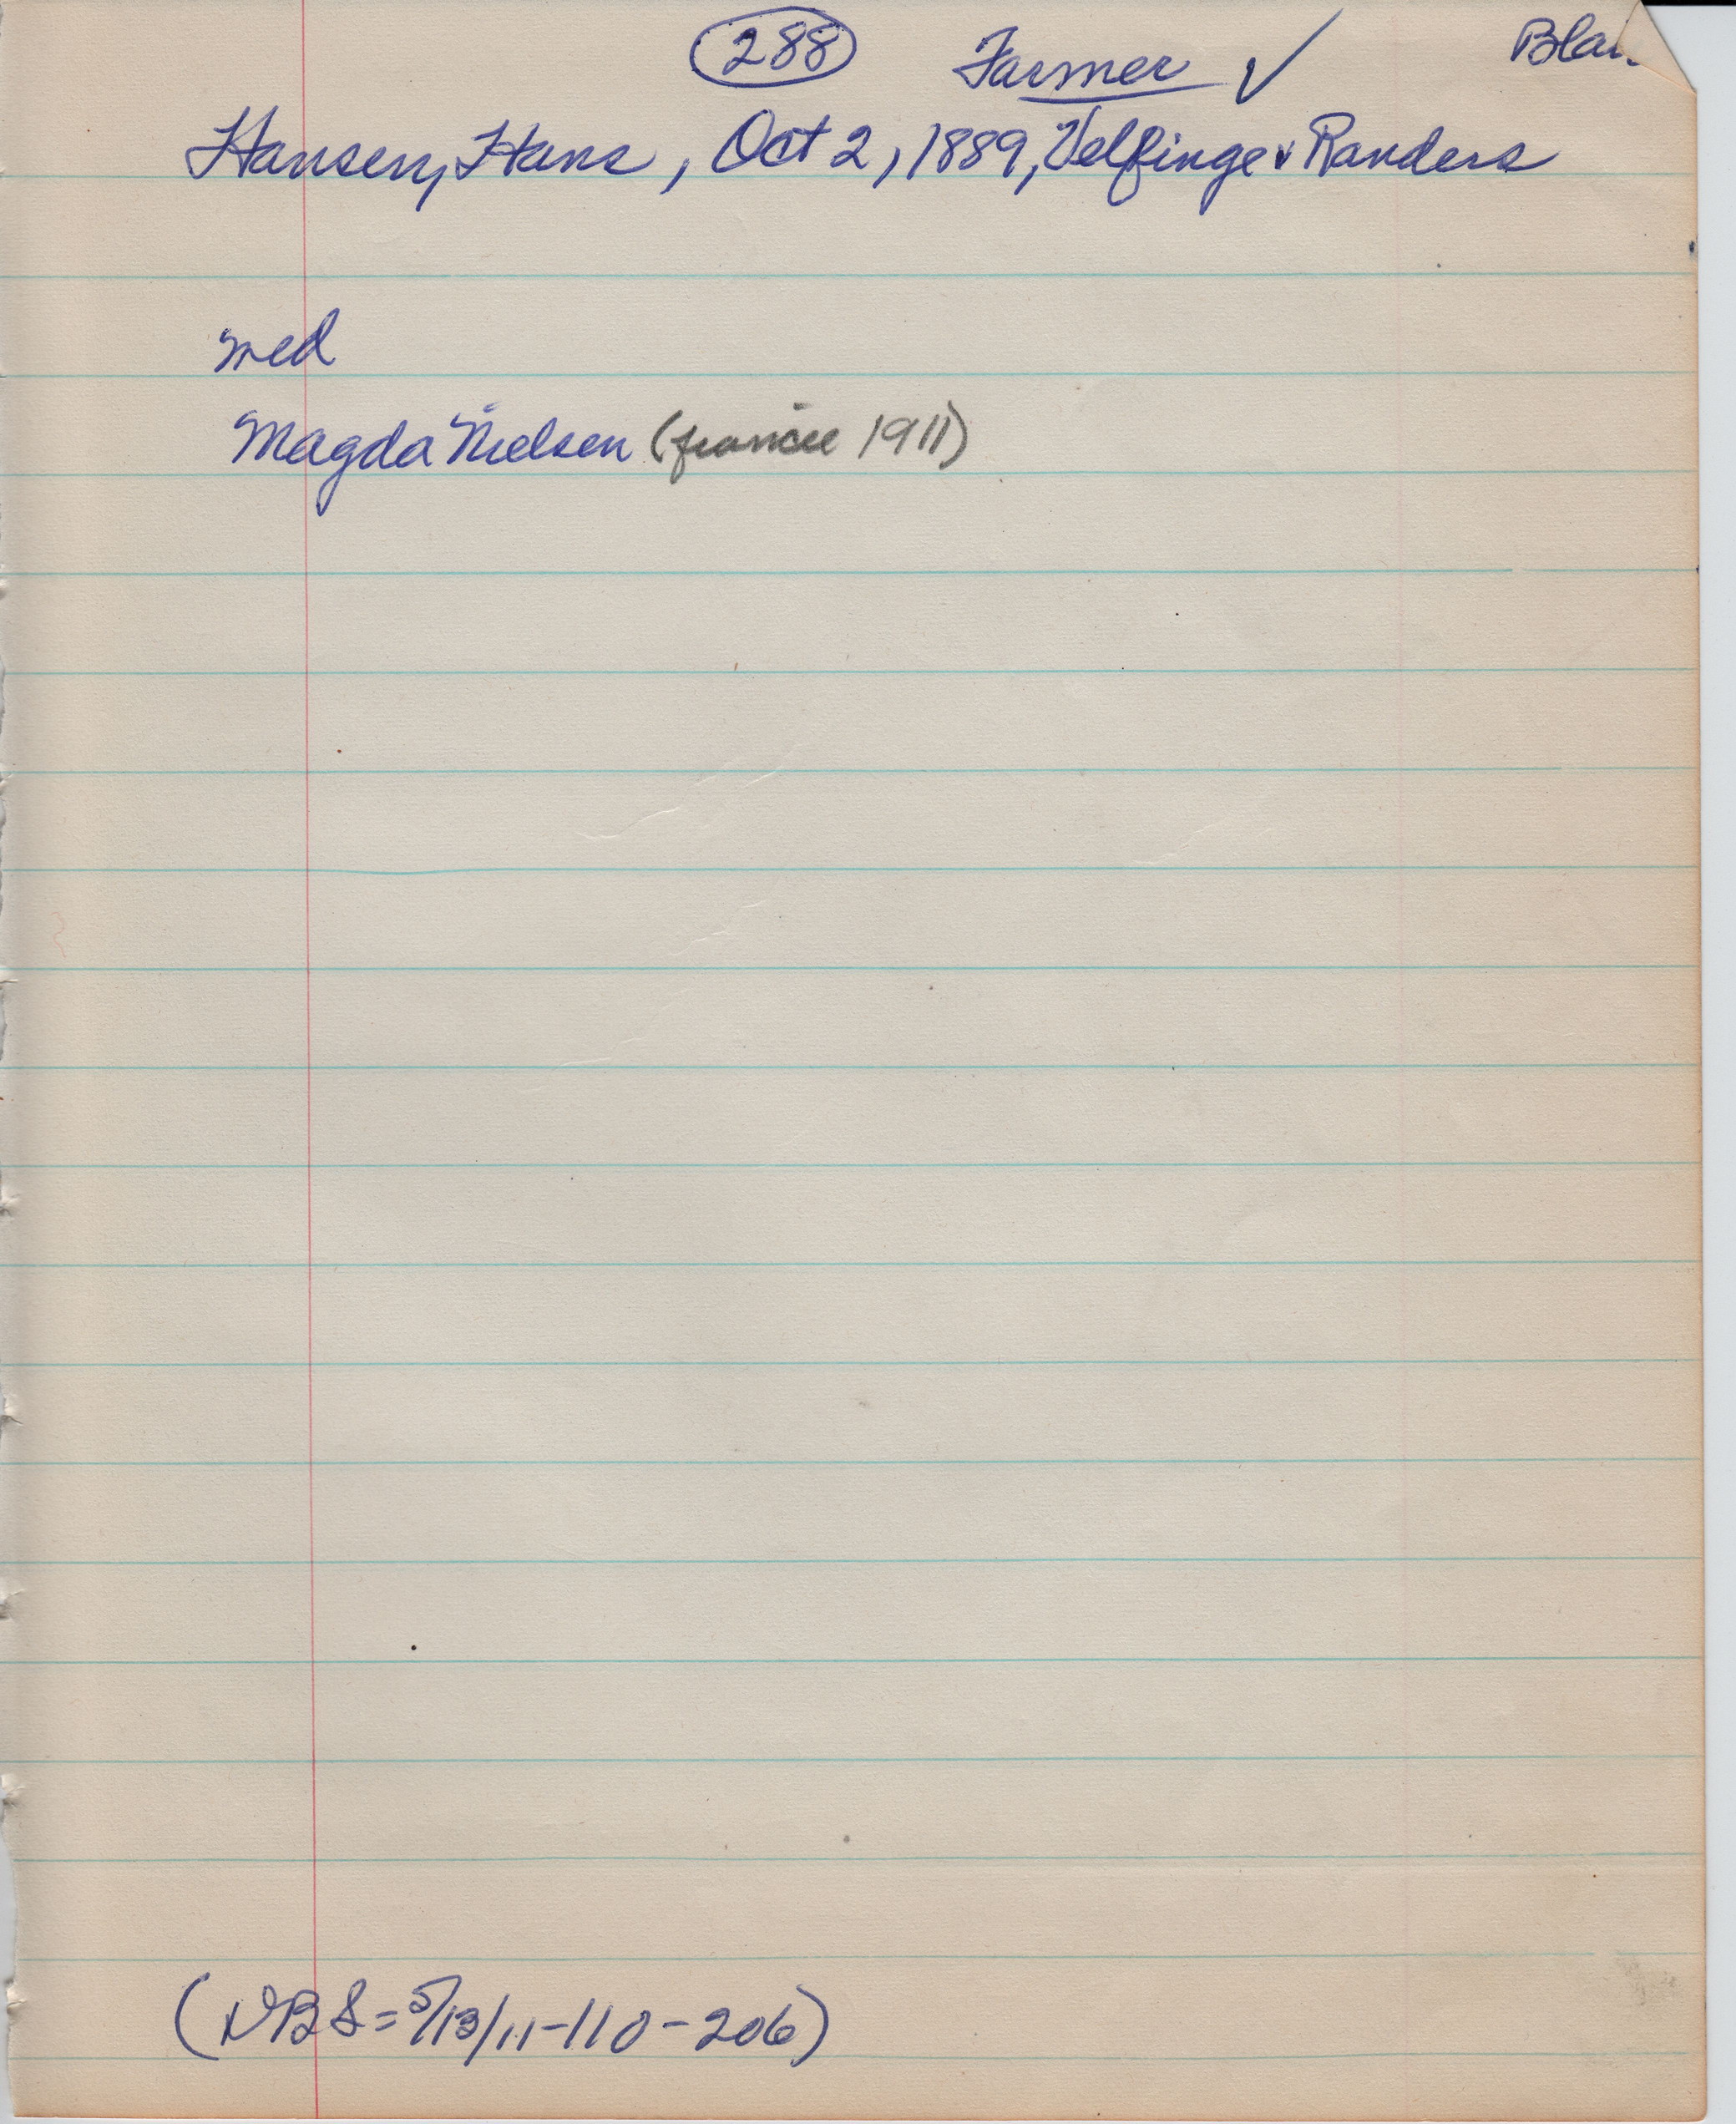 288 Farmer ✓ Bla
Hansen, Hans, Oct 2, 1889, Velfinge v Randers
med
Magda Nielsen (francee 1911)
(NBS=5/13/11-110-206)